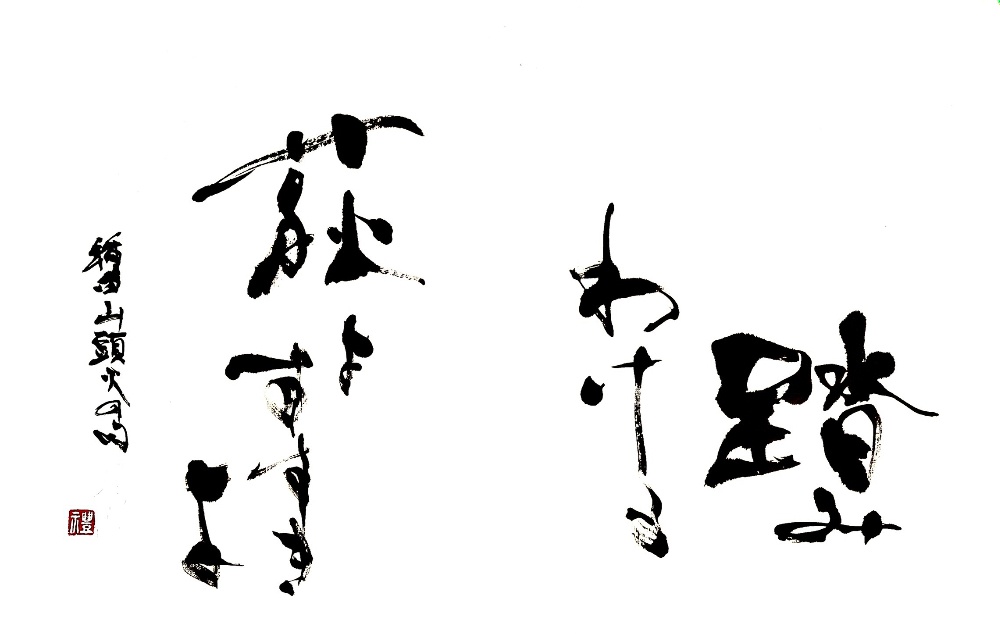 踏み
わける
萩よ
すすき
よ
種田山頭火の句
禮